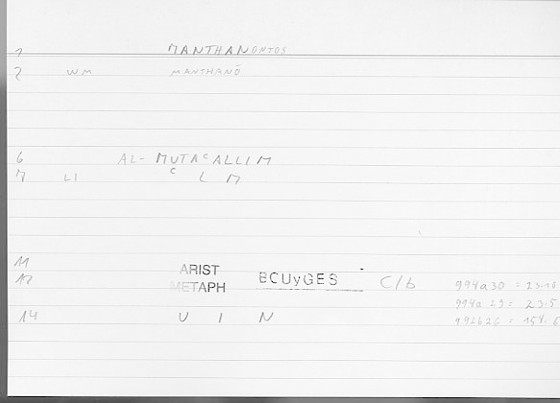 1 MANTHANONTOS
2 WM MANTHANŌ
6 AL-MUTAᶜALLIM
7 LI ᶜ L M
11 ARIST
12 METAPH BOUyGES C/b 994a30 = 23.10
994a 29 = 23.5
14 U I N